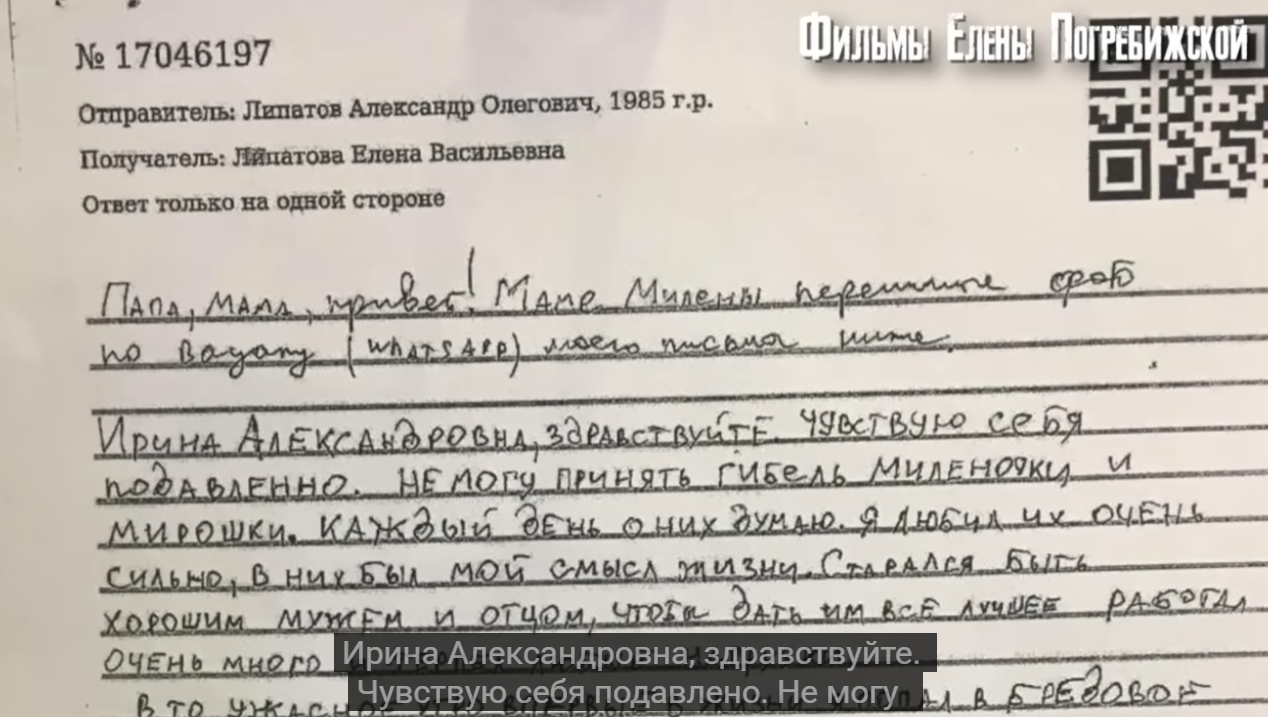 Фильмы Елены Погребижской
№ 17046197
Отправитель: Липатов Александр Олегович, 1985 г.р.
Получатель: Липатова Елена Васильевна
Ответ только на одной стороне
Папа, мама, привет! Маме Милены перешлите фото
по вацапу (WHATSAPP) моего письма ниже.
Ирина Александровна, здравствуйте. Чувствую себя
подавленно. Не могу принять гибель Миленочки, и
Мирошки. Каждый день о них думаю. Я любил их очень
сильно, в них был мой смысл жизни. Старался быть
хорошим мужем и отцом, чтобы дать им всё лучшее работал
очень много
В то ужасное в бредовое
Ирина Александровна, здравствуйте.
Чувствую себя подавлено. Не могу